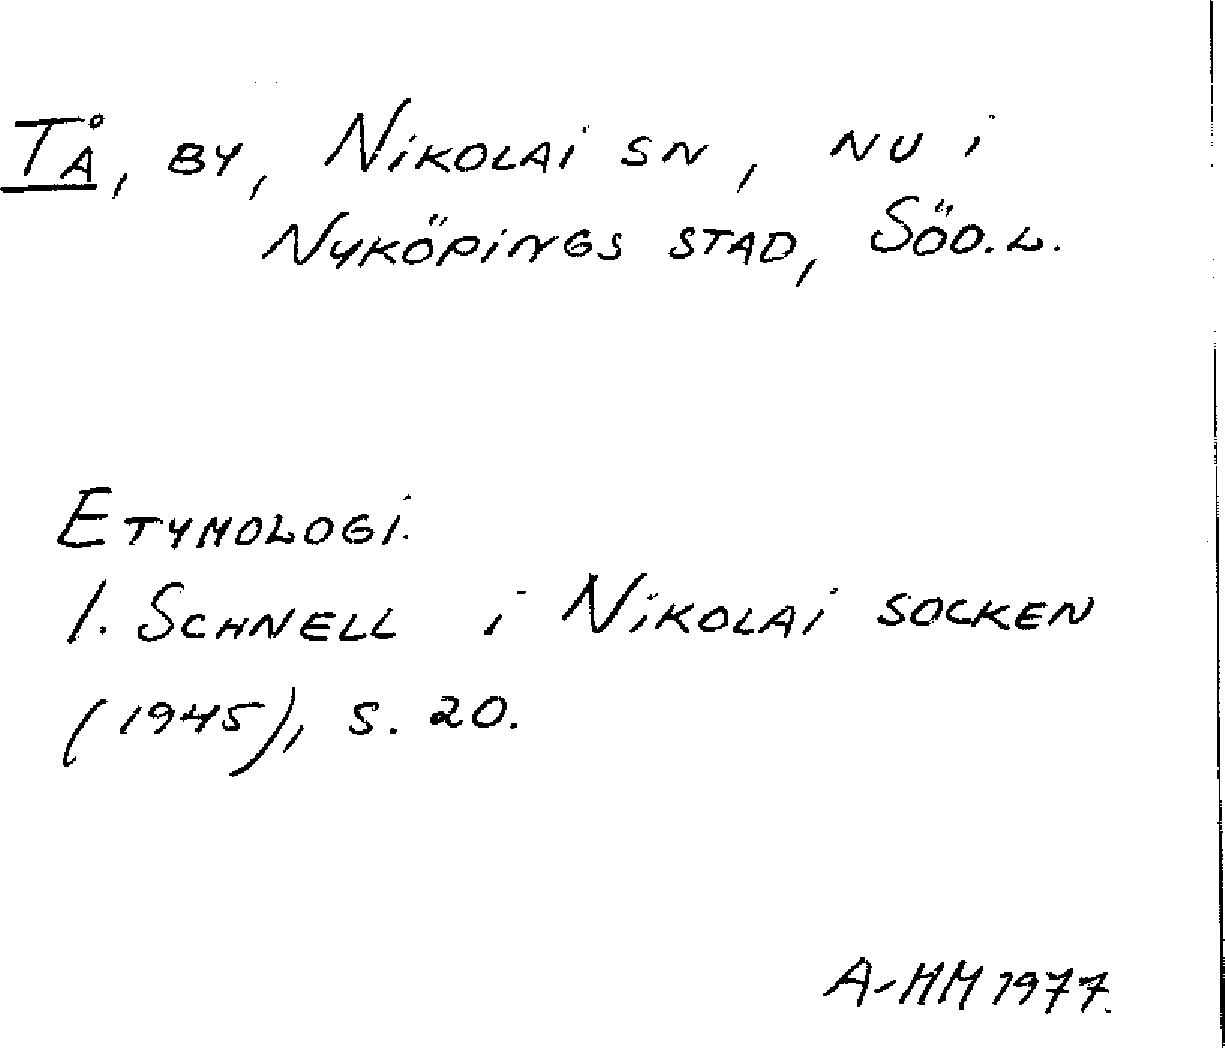 TÅ, BY, NiKOLAi SN, NU i
NYKÖPiNGS STAD, SÖD.L.
ETYMOLOGi.
I. SCHNELL i NiKOLAi SOCKEN
(1945), S. 20.
A-MM 1977.